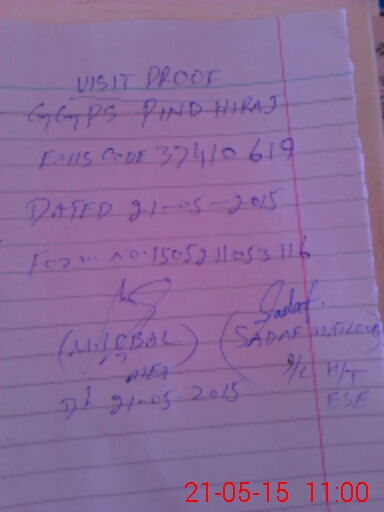 VISIT PROOF
GGPS PIND HIRAJ
EMIS CODE 37410619
DATED 21-05-2015
Form no. 1505211053116
Sadaf.
(M.IQBAL) (SADAF
I/C H/T
Dt 21-05-2015 ESE
21-05-15 11:00